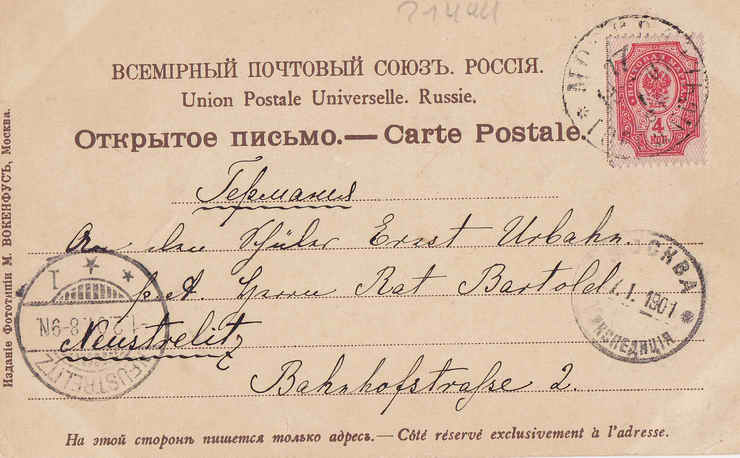 21494
ВСЕМІРНЫЙ ПОЧТОВЫЙ СОЮЗЪ. РОССІЯ.
Union Postale Universelle. Russie.
Открытое письмо. — Carte Postale.
МОСКВА
ПОЧТОВАЯ МАРКА
4 КОП.
Германия
An den Schüler Ernst Urbahn.
p. A. Herrn Rat Bartold
Neustrelitz
Bahnhofstraße 2.
МОСКВА
I. 1901
ЭКСПЕДИЦІЯ
NEUSTRELITZ
1
8-9N
Изданіе Фототипіи М. ВОКЕНФУСЪ, Москва.
На этой сторонѣ пишется только адресъ. — Côté réservé exclusivement à l'adresse.